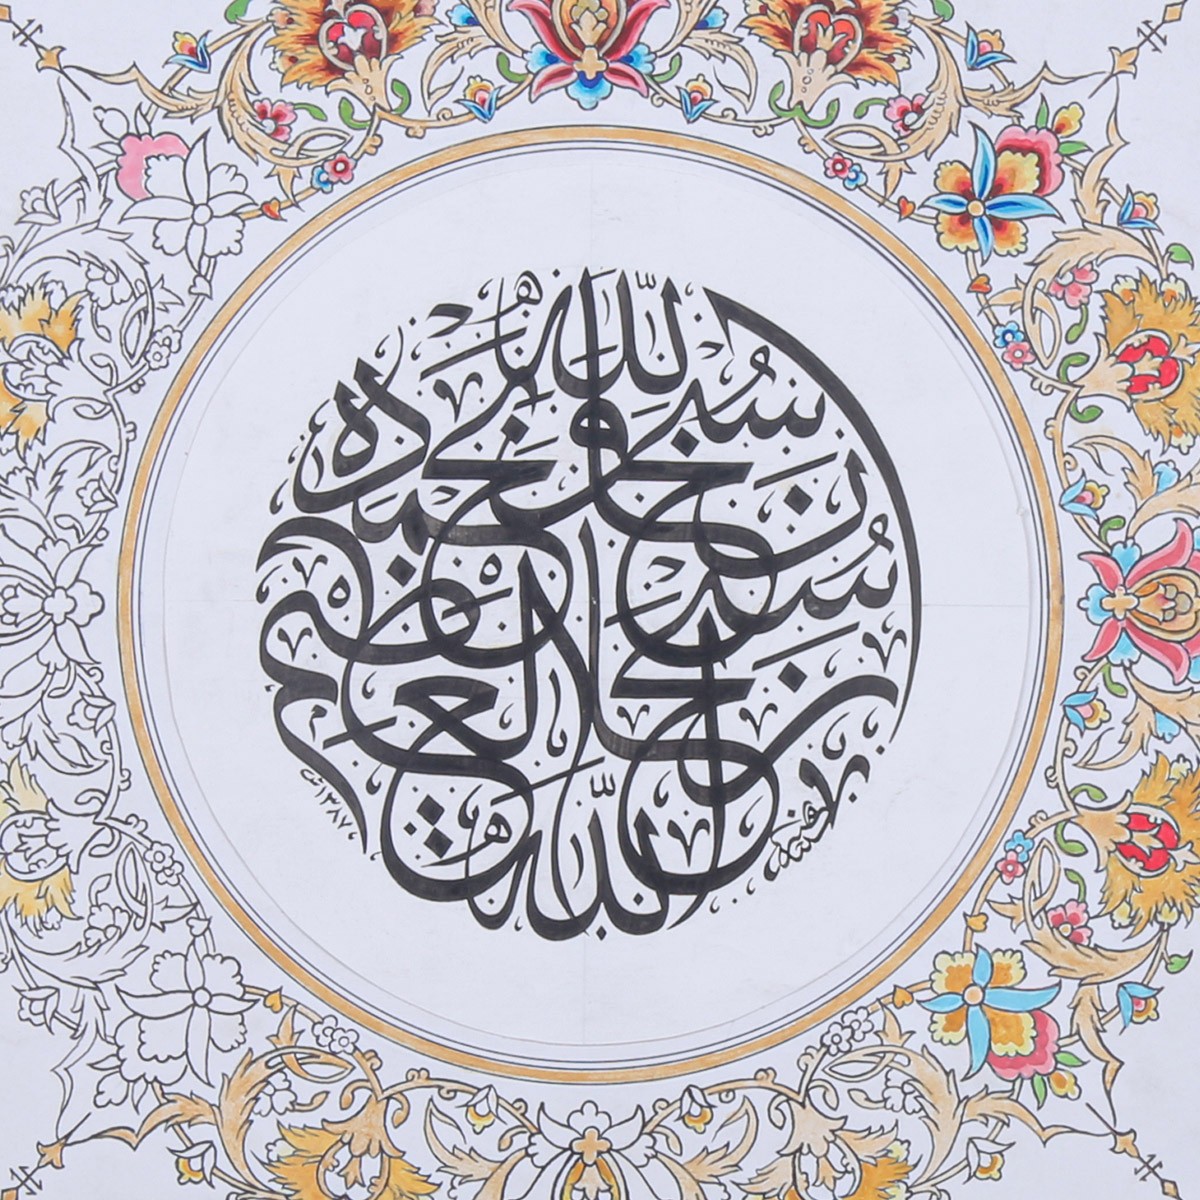 سبحان الله وبحمده
سبحان الله العظيم
١٣٨٧